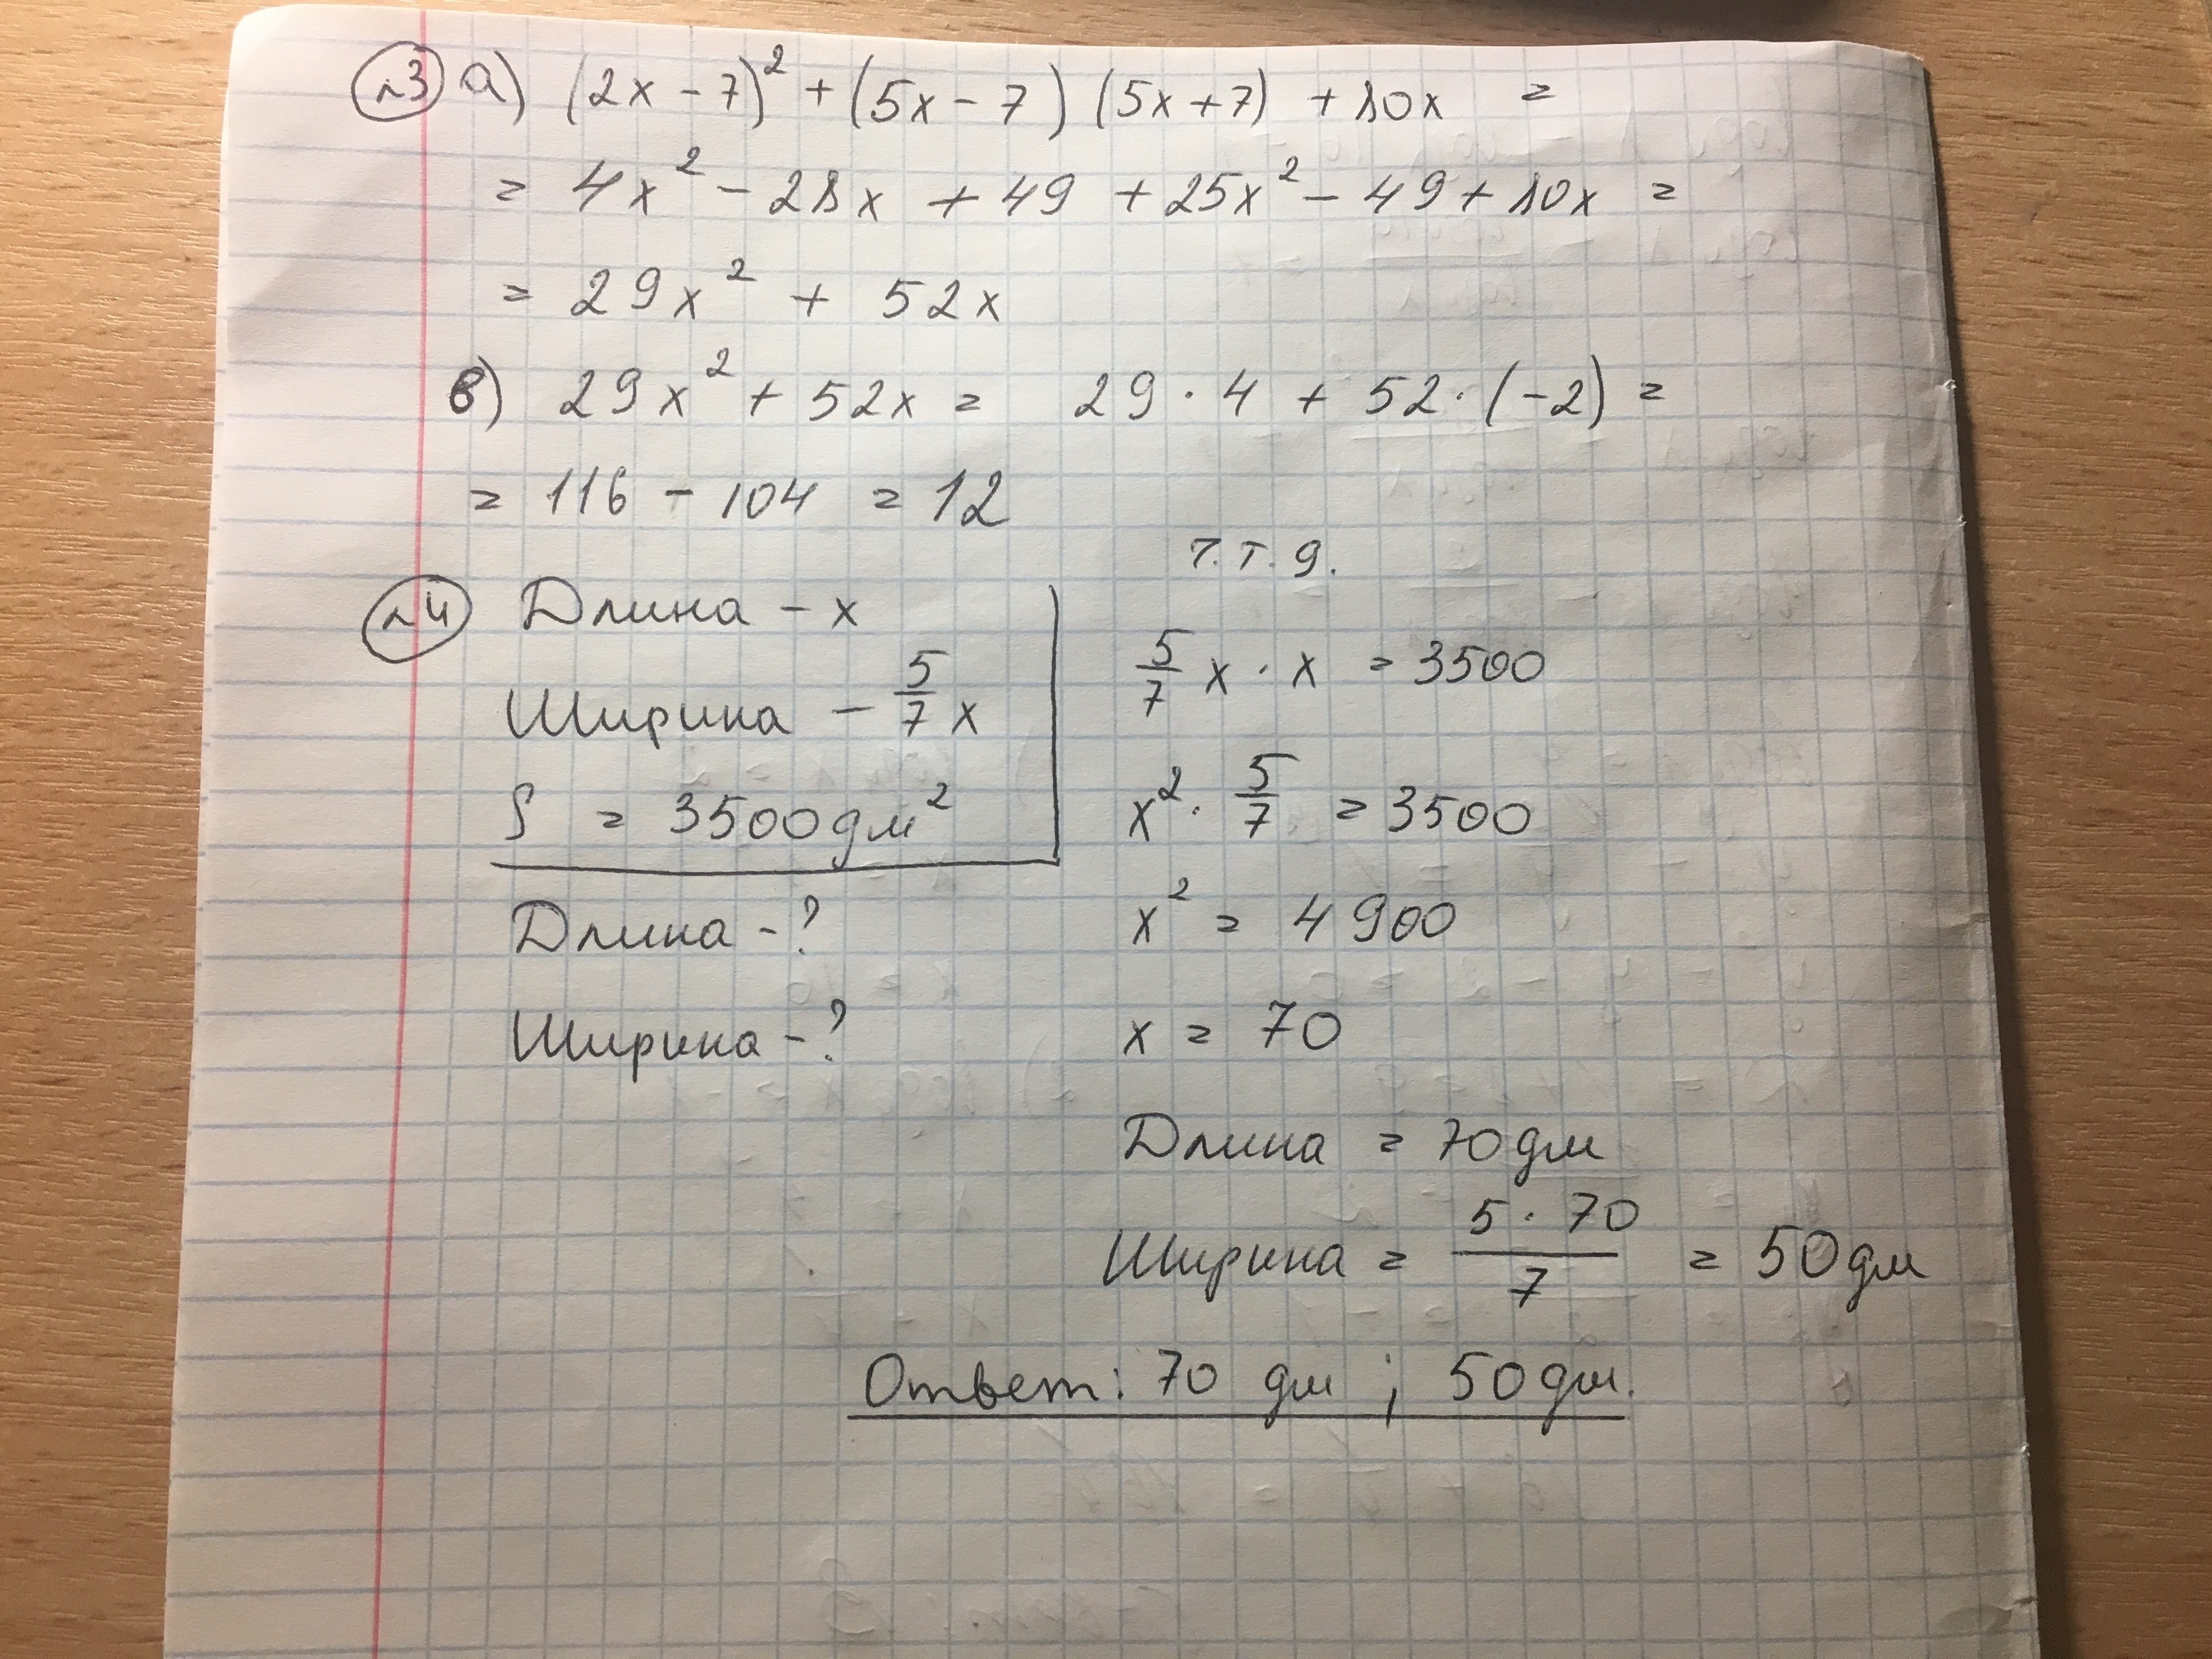 №3 а) (2x - 7)² + (5x - 7) (5x + 7) + 80x =
= 4x² - 28x + 49 + 25x² - 49 + 80x =
= 29x² + 52x
в) 29x² + 52x = 29 · 4 + 52 · (-2) =
= 116 - 104 = 12
т.т.д.
№4 Длина - x
Ширина - 5/7 x
S = 3500 дм²
Длина - ?
Ширина - ?
5/7 x · x = 3500
x² · 5/7 = 3500
x² = 4900
x = 70
Длина = 70 дм
Ширина = 5 · 70 / 7 = 50 дм
Ответ: 70 дм ; 50 дм.